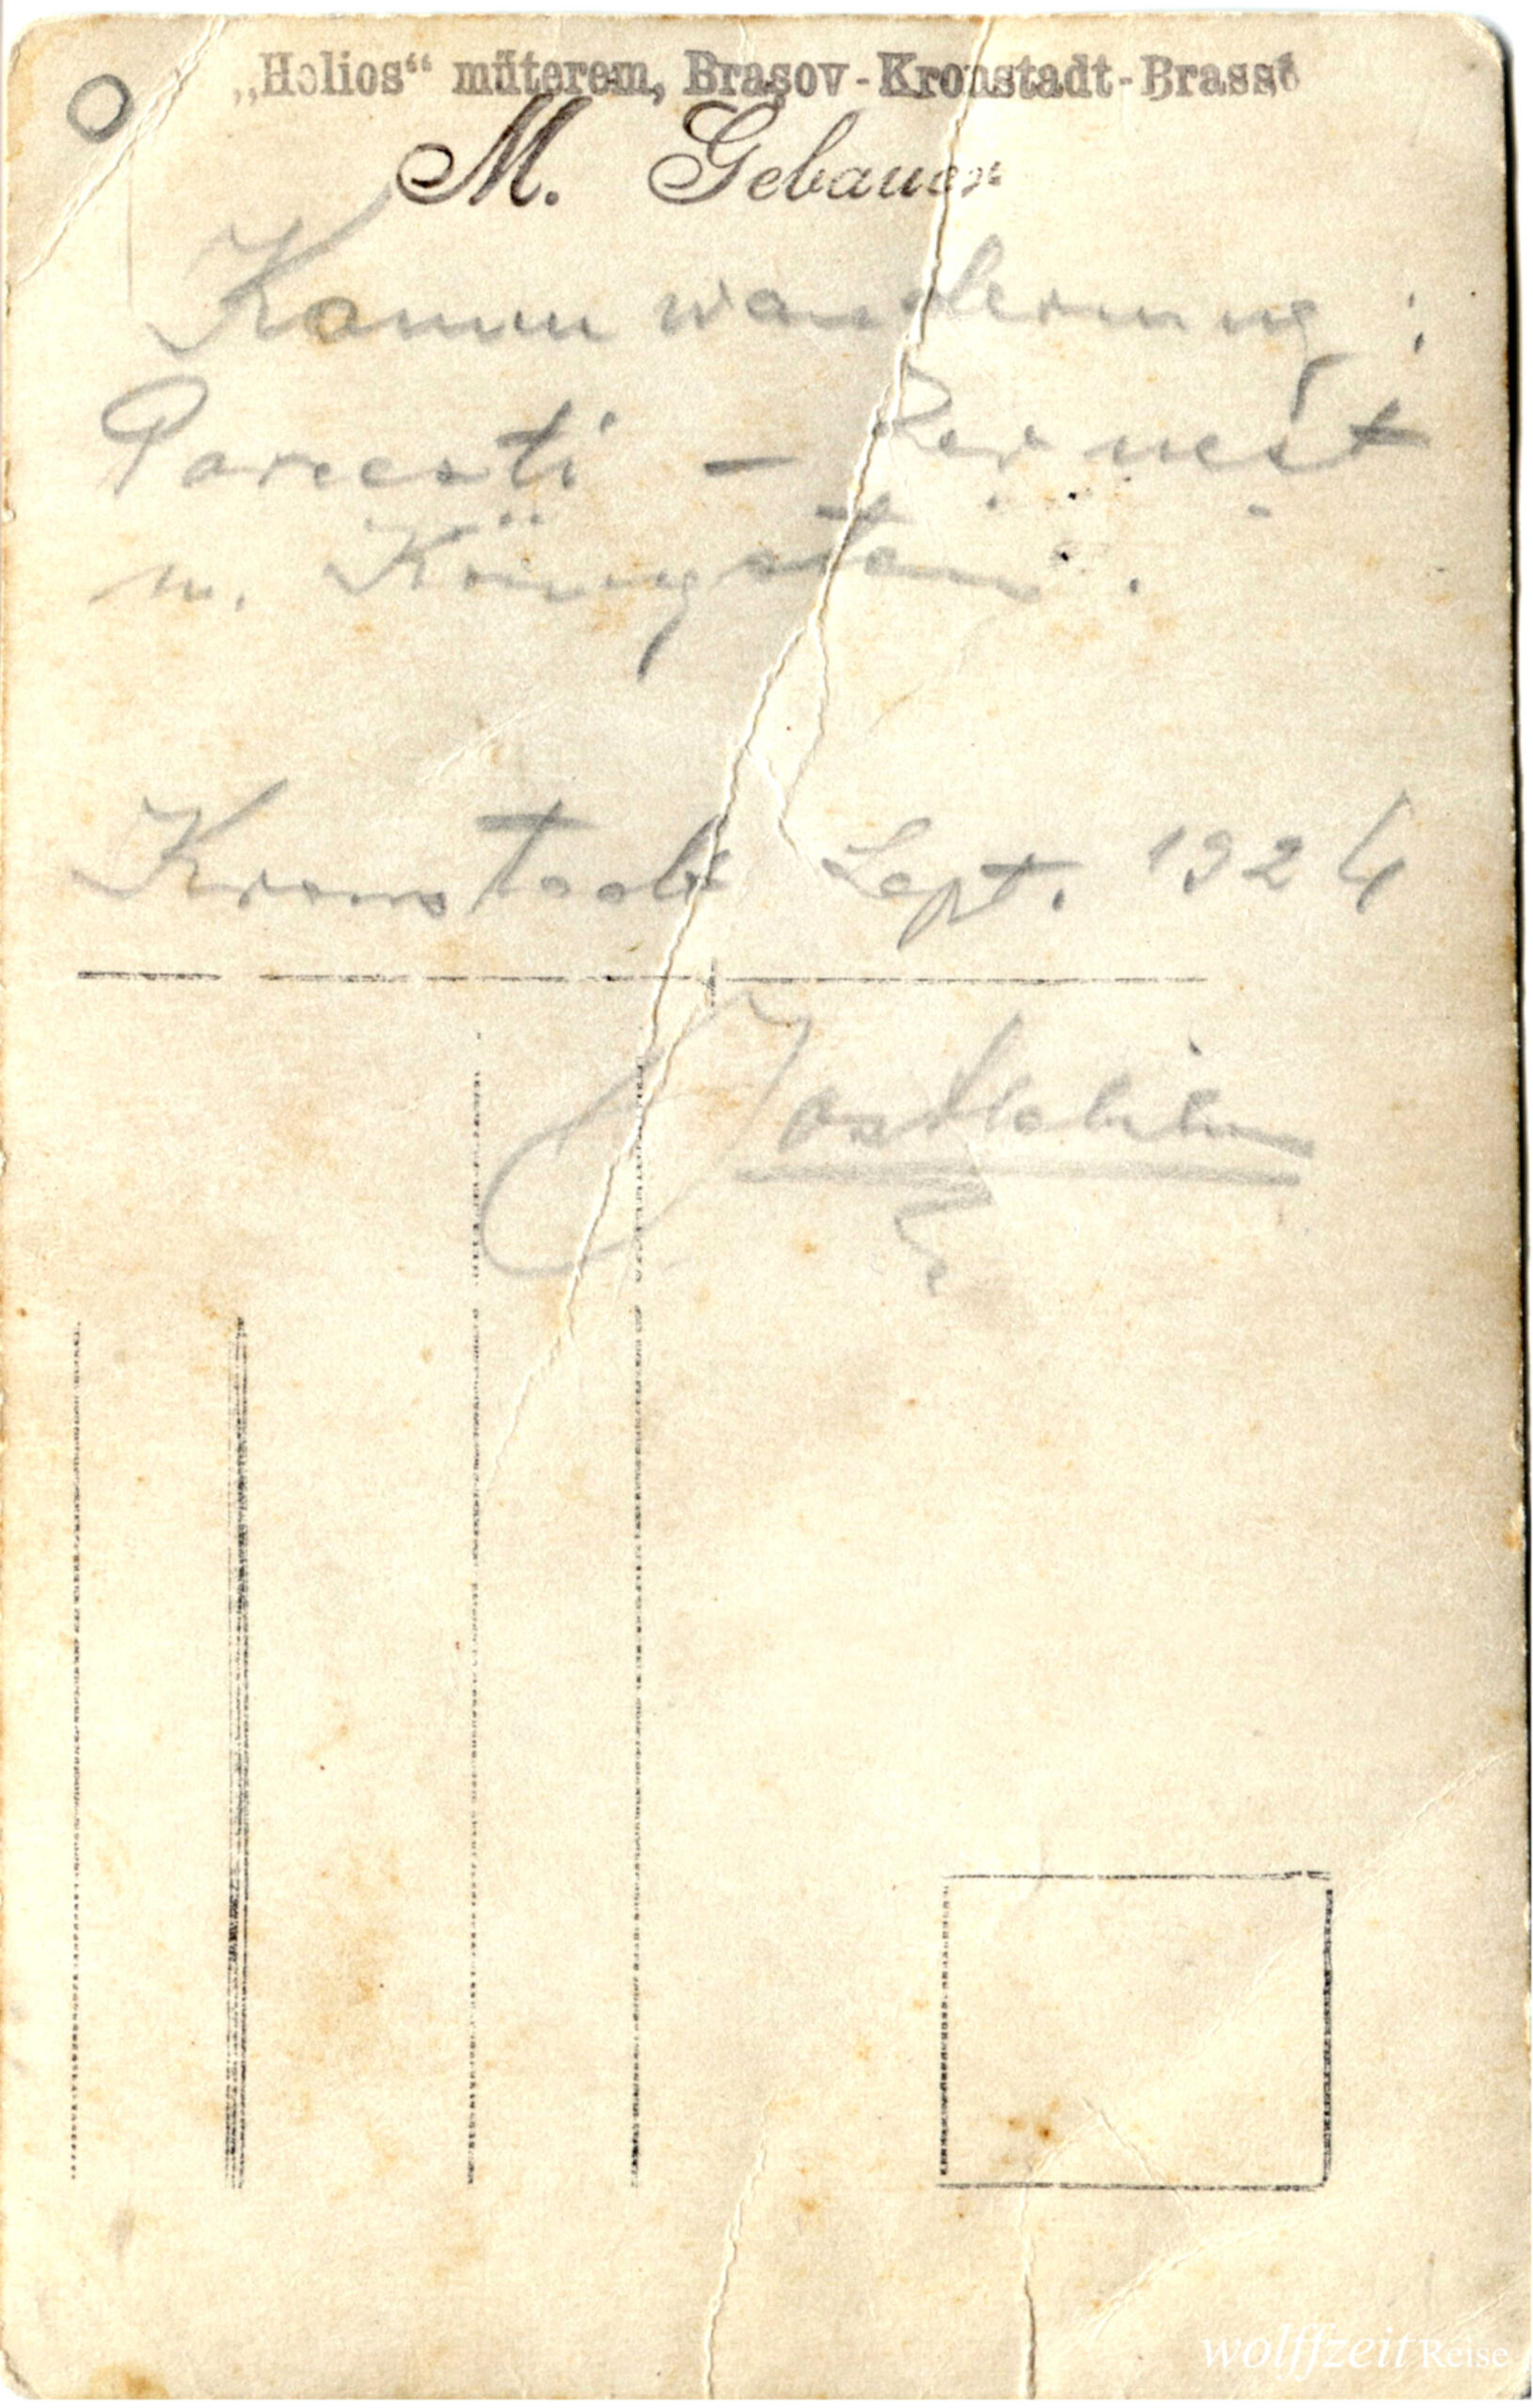 „Helios“ müterem, Brașov-Kronstadt-Brassó
M. Gebauer
Kammwanderung :
Porcesti - Zernest
u. Königstein .
Kronstadt Sept. 1924
wolffzeit Reise